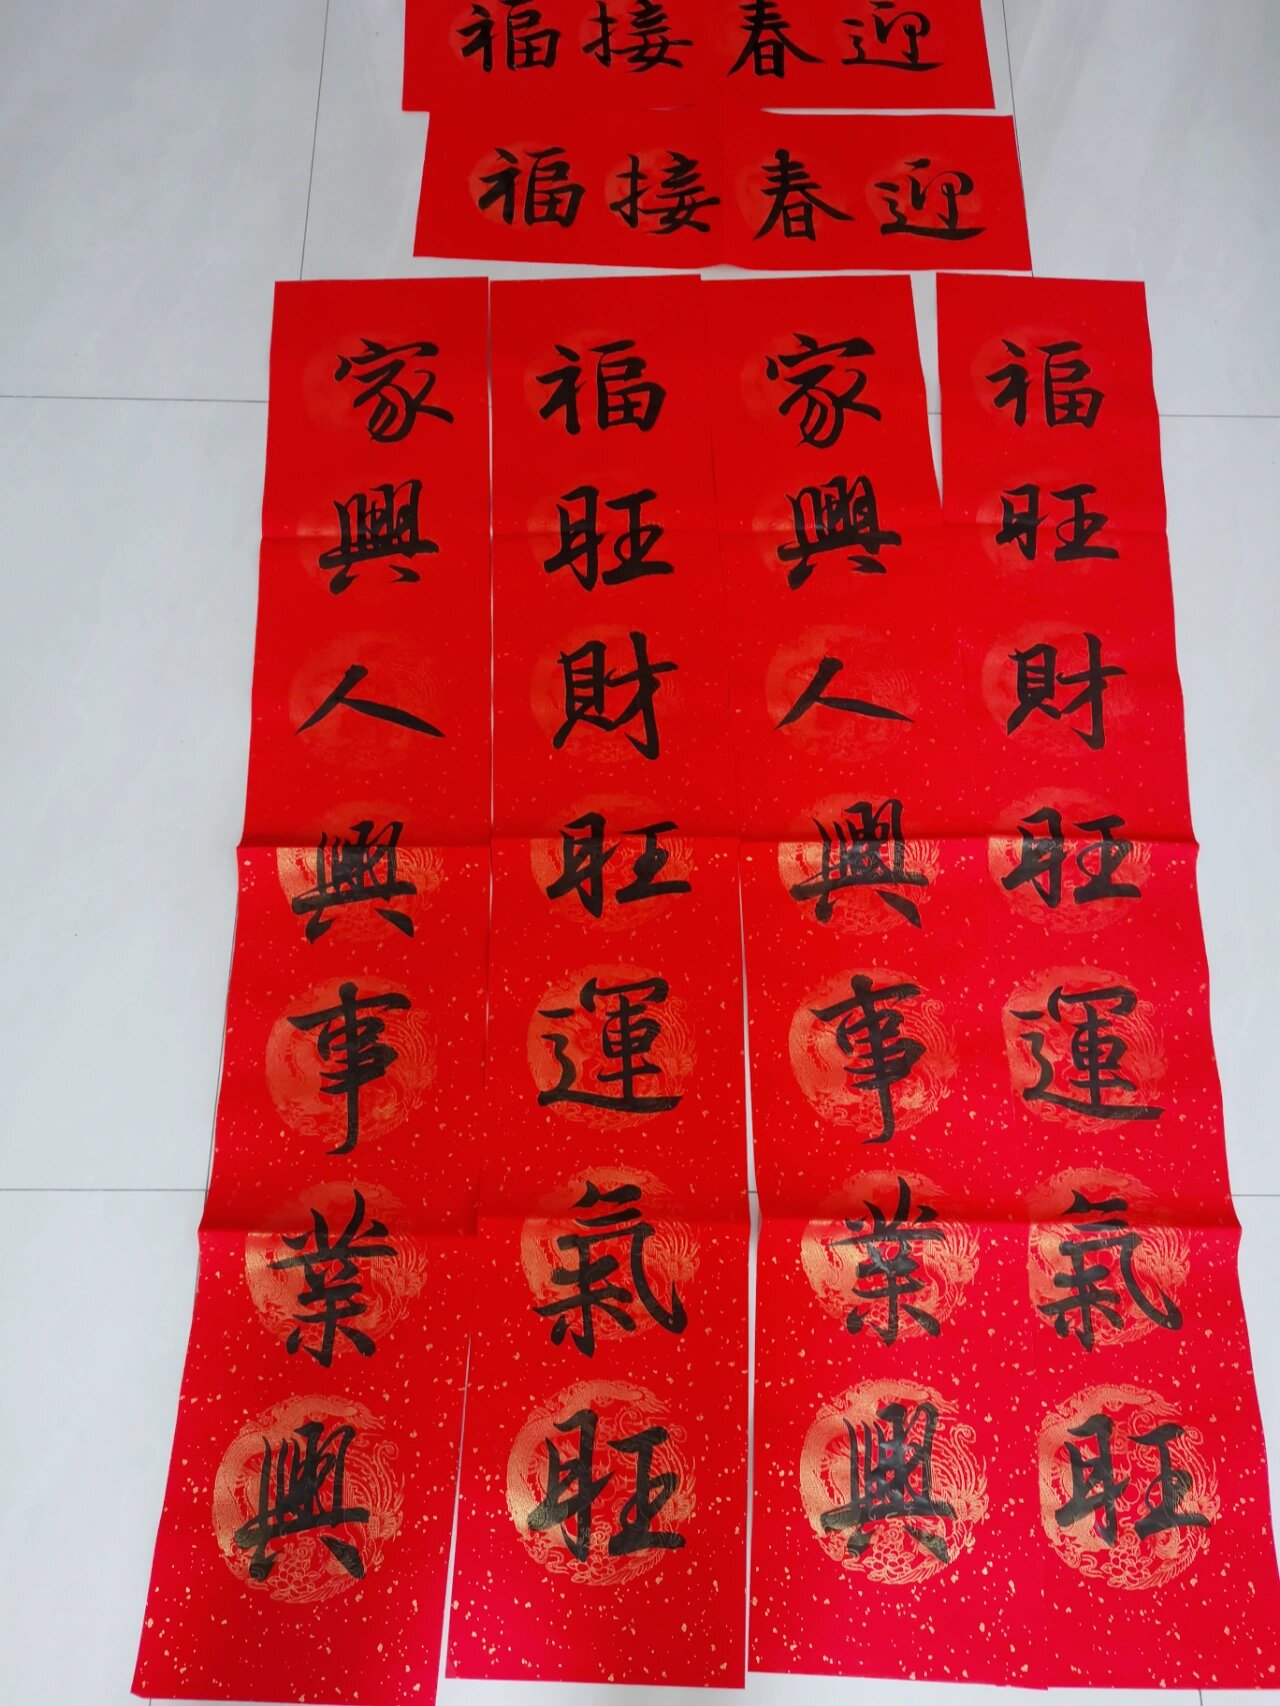 迎春接福
迎春接福
福旺財旺運氣旺
家興人興事業興
福旺財旺運氣旺
家興人興事業興